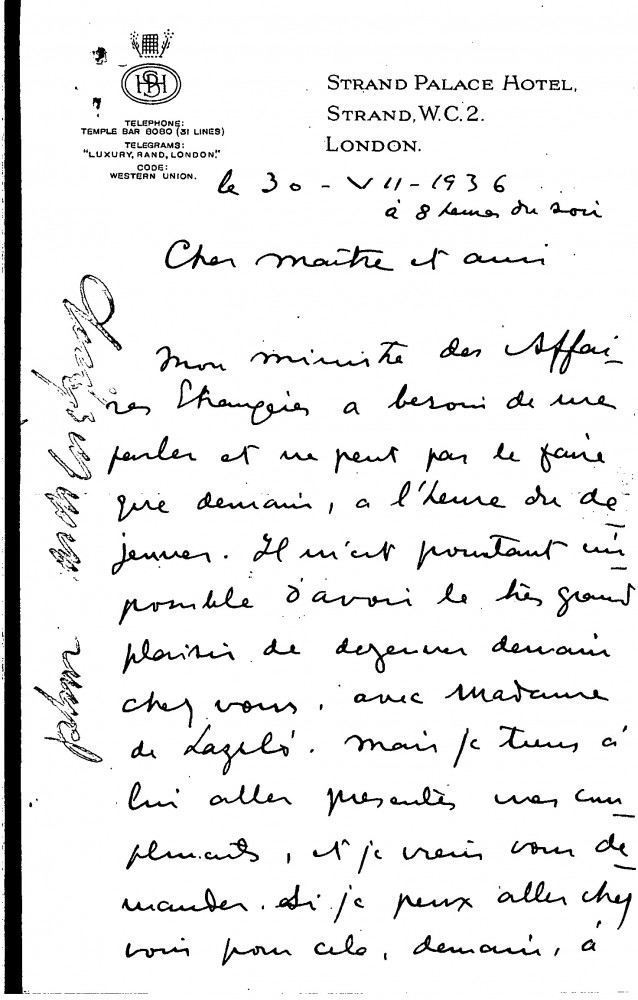 HSPH
TELEPHONE:
TEMPLE BAR 8080 (31 LINES)
TELEGRAMS:
"LUXURY, RAND, LONDON."
CODE:
WESTERN UNION.
STRAND PALACE HOTEL,
STRAND, W.C.2.
LONDON.
le 30-VII-1936
à 8 heures du soir
Cher maître et ami
Mon ministre des Affai-
res Etrangères a besoin de me
parler et ne peut pas le faire
que demain, a l'heure du de
jeuner. Il m'est pourtant im
possible d'avoir le très grand
plaisir de dejeuner demain
chez vous, avec Madame
de Laszló. Mais je tiens à
lui aller presenter mes com
pliments, et je viens vous de
mander si je peux aller chez
vous pour cela, demain, à